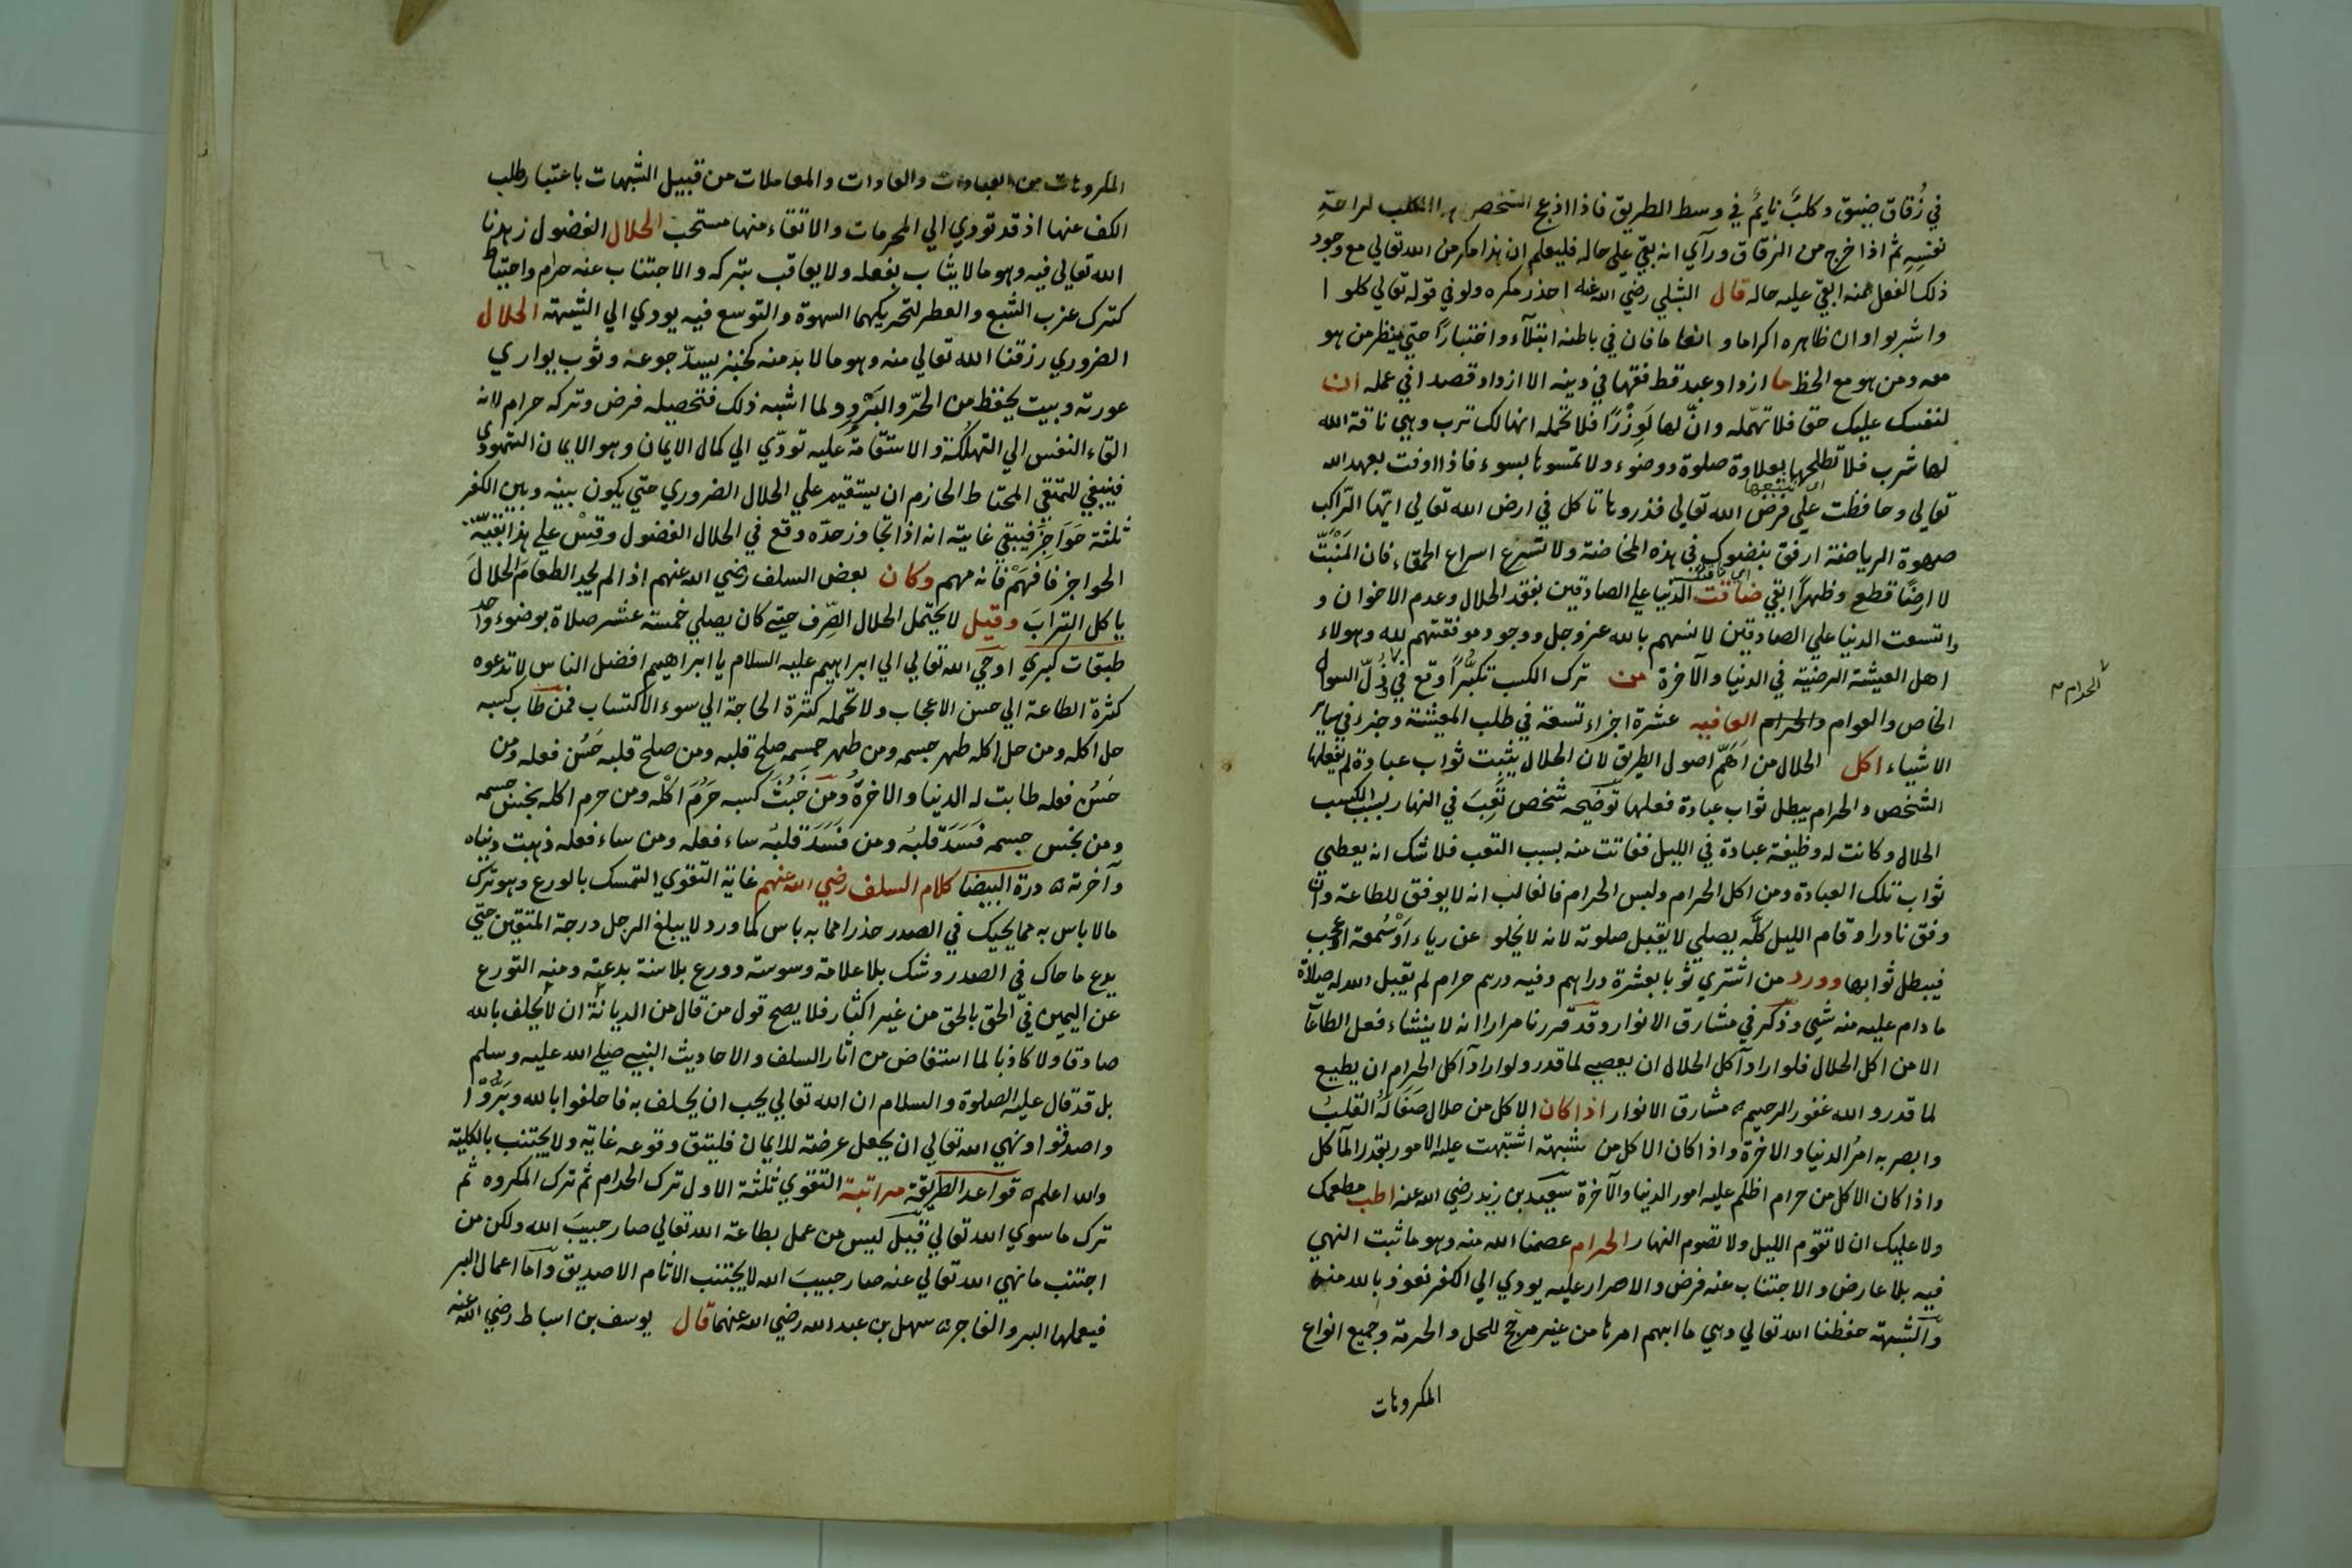 في زُقاق ضيق وكلبٌ نايمٌ في وسط الطريق فاذا ازعج الشخص الكلب لراحةِ
نفسِهِ ثم اذا خرج من الزقاق ورآي انه بقي علي حاله فليعلم ان هذا مكر من الله تعالي مع وجود
ذلك الفعل منه ابقي عليه حاله قال الشبلي رضي الله عنه احذر مكره ولو في قوله تعالي كلوا
واشربوا وان ظاهره اكراما وانعاما فان في باطنه ابتلآء واختبارًا حتي ينظر من هو
معه ومن هو مع الحظ ما ازداد عبد قط فقها في دينه الا ازداد قصدا في عمله ان
لنفسك عليك حقا فلا تهمله وانّ لها لَوِزْرًا فلا تحمله انها لك ترب وهي ناقة الله
لها شرب فلا تطلحها بعلاوة صلوة ووضوء ولا تمسوها بسوء فاذا اوفت بعهد الله
اي تتعبها
تعالي وحافظت علي فرض الله تعالي فذروها تاكل في ارض الله تعالي ايّها الرّاكب
صهوة الرياضة ارفق بنضوك في هذه المخاضة ولا تسرع اسراع الحمقاء فان المَنْبَتَّ
لا ارضًا قطع وظهرًا ابقي ضاقت الدنيا علي الصادقين بفقد الحلال وعدم الاخوان و
واتسعت الدنيا علي الصادقين لانسهم بالله عز وجل ووجود موفقتهم لله وهولاء
اهل العيشة الرضيّة في الدنيا والآخرة من ترك الكسب تكبُّرًا وقع في ذُلّ السوال
الخاص والعوام والحرام العافيه عشرة اجزاء تسعة في طلب المعيشة وجزء في ساير
الحرام
الاشياء اكل الحلال من اَهَمِّ اصول الطريق لان الحلال يثبت ثواب عبادة لم يفعلها
الشخص والحرام يبطل ثواب عبادة فعلها توضيحه شخص تَعِبَ في النهار بسبب الكسب
الحلال وكانت له وظيفة عبادة في الليل ففاتت منه بسبب التعب فلا شك انه يعطي
ثواب تلك العبادة ومن اكل الحرام ولبس الحرام فالغالب انه لا يوفق للطاعة وان
وفق نادرا وقام الليل كلَّه يصلي لا يقبل صلوته لانه لا يخلو عن رياء اَوْ سُمعة او عجب
فيبطل ثوابها وورد من اشتري ثوبا بعشرة دراهم وفيه درهم حرام لم يقبل الله له صلاة
ما دام عليه منه شيء وذكر في مشارق الانوار وقد قررنا مرارا انه لا ينشاء فعل الطاعات
الا من اكل الحلال فلو اراد آكل الحلال ان يعصي لما قدر ولو اراد آكل الحرام ان يطيع
لما قدر والله غفور الرحيم مشارق الانوار اذا كان الاكل من حلال صَفَا لَهُ القلبُ
وابصر به امرُ الدنيا والاخرة واذا كان الاكل من شبهة اشتبهت عليه الامور بقدر المآكل
واذا كان الاكل من حرام اظلم عليه امور الدنيا والآخرة سعيد بن زيد رضي الله عنه اطب مطعمك
ولا عليك ان لا تقوم الليل ولا تصوم النهار الحرام عصمنا الله منه وهو ما ثبت النهي
فيه بلا عارض والاجتناب عنه فرض والاصرار عليه يودي الي الكفر نعوذ بالله منه
والشبهة حفظنا الله تعالي وهي ما ابهم امرها من غير مرجّح للحل والحرمة وجميع انواع
المكروهات
المكروهات من العبادات والعادات والمعاملات من قبيل الشبهات باعتبار طلب
الكف عنها اذ قد تودي الي المحرمات والاتقاء منها مستحب الحلال الفضول زهدنا
الله تعالي فيه وهو ما لا يثاب بفعله ولا يعاقب بتركه والاجتناب عنه حزم واحتياط
كترك عزب الشبع والعطر لتحريكهما الشهوة والتوسع فيه يودي الي الشبهة الحلال
الضروري رزقنا الله تعالي منه وهو ما لا بد منه كخبز يسدّ جوعه وثوب يواري
عورته وبيت يحفظ من الحرّ والبَرْد ولما اشبه ذلك فتحصيله فرض وتركه حرام لانه
القاء النفس الي التهلكة والاستقامة عليه تودّي الي كمال الايمان وهو الايمان الشهودي
فينبغي للمتقي المحتاط الحازم ان يستقيم علي الحلال الضروري حتي يكون بينه وبين الكفر
ثلثة حَوَاجِزَ فيبقي غايته انه اذا تجاوز حدّه وقع في الحلال الفضول وقِسْ علي هذا بقيّة
الحواجز فافهَمْ فانه مهم وكان بعض السلف رضي الله عنهم اذا لم يجد الطعَامَ الحلالَ
ياكل الترابَ وقيل لا يحتمل الحلال الصِّرف حتي كان يصلي خمسة عشر صلاة بوضوء واحد
طبقات كبري اوحي الله تعالي الي ابراهيم عليه السلام يا ابراهيم افضل الناس لا تدعوه
كثرة الطاعة الي حسن الاعجاب ولا تحمله كثرة الحاجة الي سوء الاكتساب فمن طاب كسبه
حل اكله ومن حل اكله طهر جسمه ومن طهر جسمه صلح قلبه ومن صلح قلبه حَسُن فعله ومن
حَسُن فعله طابت له الدنيا والاخرةُ ومن خَبُثَ كسبه حَرُمَ اكْله ومن حرم اكله نجس جسمه
ومن نجس جسمه فَسَدَ قلبُه ومن فَسَدَ قلبُه ساء فعله ومن ساء فعله ذهبت دنياه
وآخرته درة البيضا كلام السلف رضي الله عنهم غاية التقوي التمسك بالورع وهو ترك
ما لا باس به مما يحيك في الصدر حذرا مما به باس كما ورد لا يبلغ الرجل درجة المتقين حتي
يدع ما حاك في الصدر وشك بلا علامة وسوسة وورع بلا سنة بدعة ومنه التورع
عن اليمين في الحق بالحق من غير اكثار فلا يصح قول من قال من الديانة ان لا يحلف بالله
صادقا ولا كاذبا لما استفاض من اثار السلف والاحاديث النبي صلي الله عليه وسلم
بل قد قال عليه الصلوة والسلام ان الله تعالي يحب ان يحلف به فاحلفوا بالله وبَرُّوْا
واصدقوا ونهي الله تعالي ان يجعل عرضة للايمان فليتق وقوعه غاية ولا يجتنب بالكلية
والله اعلم قواعد الطريقة مراتبة التقوي ثلثة الاول ترك الحرام ثم ترك المكروه ثم
ترك ما سوي الله تعالي قيل ليس من عمل بطاعة الله تعالي صار حبيبَ الله ولكن من
اجتنب ما نهي الله تعالي عنه صار حبيبَ الله لا يجتنب الاثام الا صديق وآما اعمال البر
فيعملها البر والفاجر سهل بن عبد الله رضي الله عنهما قال يوسف بن اسباط رضي الله عنه